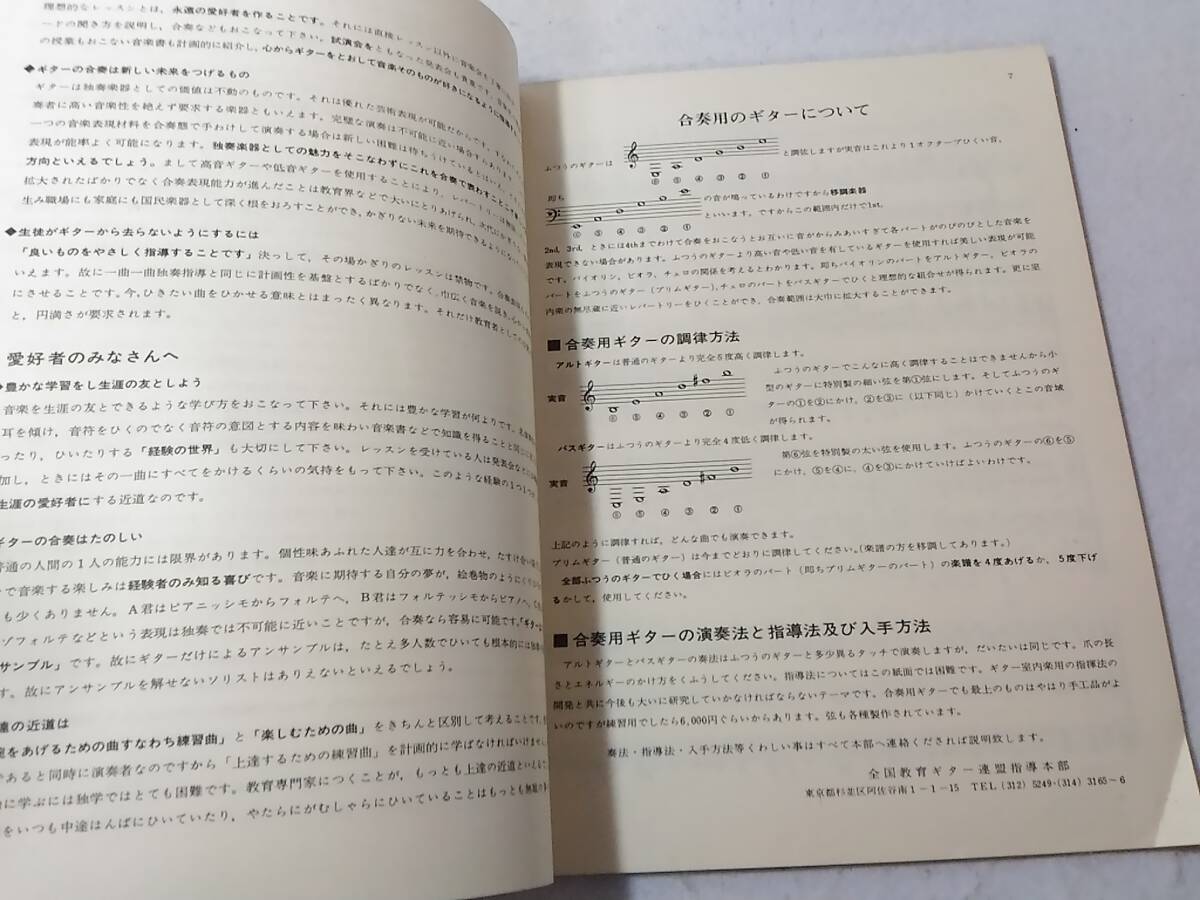 理想的なレッスンとは，永遠の愛好者を作ることです。それには直接レッスン以外に音楽会も
ードの聞き方を説明し，合奏などもおこなって下さい。試演会をともなった発表会も
の授業もおこない音楽書も計画的に紹介し，心からギターをとおして音楽そのものが好きになるように
◆ギターの合奏は新しい未来をつげるもの
ギターは独奏楽器としての価値は不動のものです。それは優れた芸術表現が可能だからです。
奏者に高い音楽性を絶えず要求する楽器ともいえます。完璧な演奏は不可能に近い場合すらあります。
一つの音楽表現材料を合奏態で手わけして演奏する場合は新しい困難は待ちうけているとはいえ，
表現が能率よく可能になります。独奏楽器としての魅力をそこなわずにこれを合奏で表わすことこそ
方向といえるでしょう。まして高音ギターや低音ギターを使用することにより，レパートリーは
拡大されたばかりでなく合奏表現能力が進んだことは教育界などで大いにとりあげられ，次代に
生み職場にも家庭にも国民楽器として深く根をおろすことができ，かぎりない未来を期待できるように
◆生徒がギターから去らないようにするには
「良いものをやさしく指導することです」決って，その場かぎりのレッスンは禁物です。
いえます。故に一曲一曲独奏指導と同じに計画性を基盤とするばかりでなく，巾広く音楽を説き，
にさせることです。今，ひきたい曲をひかせる意味とはまったく異なります。それだけ教育者としての
と，円満さが要求されます。
愛好者のみなさんへ
◆豊かな学習をし生涯の友としよう
音楽を生涯の友とできるような学び方をおこなって下さい。それには豊かな学習が何よりです。
耳を傾け，音符をひくのでなく音符の意図とする内容を味わい音楽書などで知識を得ること
ったり，ひいたりする「経験の世界」も大切にして下さい。レッスンを受けている人は発表会など
加し，ときにはその一曲にすべてをかけるくらいの気持をもって下さい。このような経験の1つ1つ
生涯の愛好者にする近道なのです。
ギターの合奏はたのしい
普通の人間の1人の能力には限界があります。個性味あふれた人達が互に力を合わせ，たすけ合い
で音楽する楽しみは経験者のみ知る喜びです。音楽に期待する自分の夢が，絵巻物のように
も少くありません。A君はピアニッシモからフォルテへ，B君はフォルテッシモからピアノへ，
ゾフォルテなどという表現は独奏では不可能に近いことですが，合奏なら容易に可能です。
サンブル」です。故にギターだけによるアンサンブルは，たとえ多人数でひいても根本的には
す。故にアンサンブルを解せないソリストはありえないといえるでしょう。
達の近道は
をあげるための曲すなわち練習曲」と「楽しむための曲」をきちんと区別して考えることです。
であると同時に演奏者なのですから「上達するための練習曲」を計画的に学ばなければいけません。
に学ぶには独学ではとても困難です。教育専門家につくことが，もっとも上達の近道といえる
をいつも中途はんぱにひいていたり，やたらにがむしゃらにひいていることはもっとも無駄
7
合奏用のギターについて
ふつうのギターは
と調弦しますが実音はこれより1オクターブひくい音，
⑥ ⑤ ④ ③ ② ①
即ち
の音が鳴っているわけですから移調楽器
といいます。ですからこの範囲内だけで1st,
⑥ ⑤ ④ ③ ② ①
2nd, 3rd, ときには4thまでわけて合奏をおこなうとお互いに音がからみあいすぎて各パートがのびのびとした音楽を
表現できない場合があります。ふつうのギターより高い音や低い音を有しているギターを使用すれば美しい表現が可能
です。バイオリン，ビオラ，チェロの関係を考えるとわかります。即ちバイオリンのパートをアルトギター，ビオラの
パートをふつうのギター（プリムギター），チェロのパートをバスギターでひくと理想的な組合せが得られます。更に室
内楽の無尽蔵に近いレパートリーをひくことができ，合奏範囲は大巾に拡大することができます。
■合奏用ギターの調律方法
アルトギターは普通のギターより完全5度高く調律します。
実音
⑥ ⑤ ④ ③ ② ①
ふつうのギターでこんなに高く調律することはできませんから小
型のギターに特別製の細い弦を第①弦にします。そしてふつうのギ
ターの①を②にかけ，②を③に（以下同じ）かけていくとこの音域
が得られます。
バスギターはふつうのギターより完全4度低く調律します。
実音
⑥ ⑤ ④ ③ ② ①
第⑥弦を特別製の太い弦を使用します。ふつうのギターの⑥を⑤
にかけ，⑤を④に，④を③にかけていけばよいわけです。
上記のように調律すれば，どんな曲でも演奏できます。
プリムギター（普通のギター）は今までどおりに調律してください。（楽譜の方を移調してあります。）
全部ふつうのギターでひく場合にはビオラのパート（即ちプリムギターのパート）の楽譜を4度あげるか，5度下げ
るかして，使用してください。
■合奏用ギターの演奏法と指導法及び入手方法
アルトギターとバスギターの奏法はふつうのギターと多少異るタッチで演奏しますが，だいたいは同じです。爪の長
さとエネルギーのかけ方をくふうしてください。指導法についてはこの紙面では困難です。ギター室内楽用の指揮法の
開発と共に今後も大いに研究していかなければならないテーマです。合奏用ギターでも最上のものはやはり手工品がよ
いのですが練習用でしたら6,000円ぐらいからあります。弦も各種製作されています。
奏法・指導法・入手方法等くわしい事はすべて本部へ連絡くだされば説明致します。
全国教育ギター連盟指導本部
東京都杉並区阿佐谷南1－1－15 TEL (312) 5249・(314) 3165～6